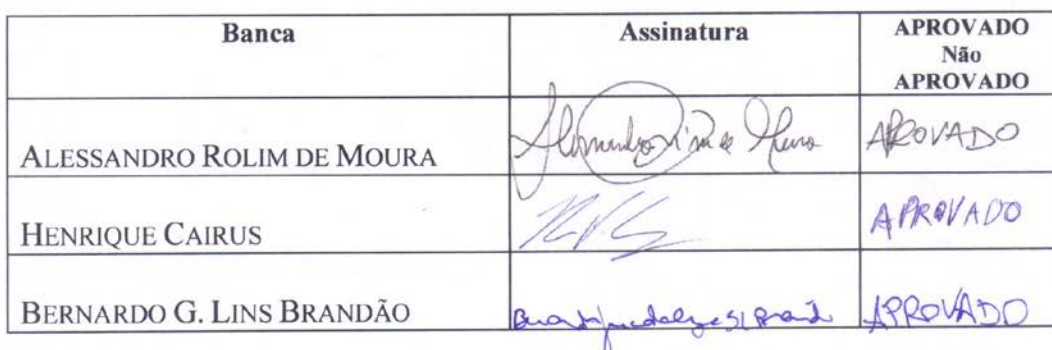 Banca Assinatura APROVADO
Não
APROVADO
ALESSANDRO ROLIM DE MOURA APROVADO
HENRIQUE CAIRUS APROVADO
BERNARDO G. LINS BRANDÃO APROVADO